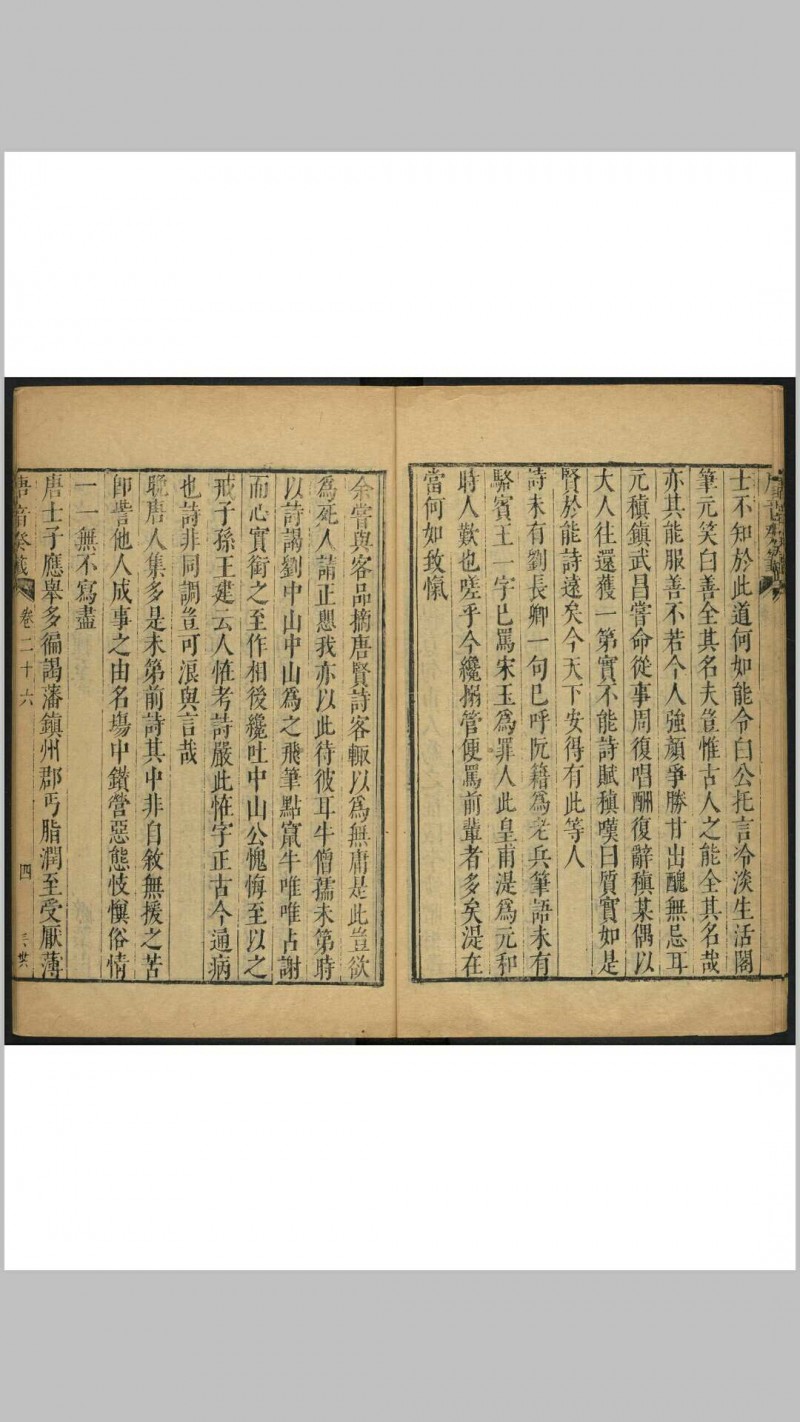 士不知於此道何如能令白公托言冷淡生活閣
筆元笑曰善全其名夫豈惟古人之能全其名哉
亦其能服善不若今人強顏爭勝甘出醜無忌耳
元稹鎮武昌嘗命從事周復唱酬復辭稹某偶以
大人往還獲一第實不能詩賦稹嘆曰質實如是
賢於能詩遠矣今天下安得有此等人
詩未有劉長卿一句巳呼阮籍爲老兵筆語未有
駱賓王一字巳罵宋玉爲罪人此皇甫湜爲元和
時人歎也嗟乎今纔搦管便罵前輩者多矣湜在
當何如致愾
余嘗與客品摘唐賢詩客輒以爲無庸是此豈欲
爲死人請正應我亦以此待彼耳牛僧孺未第時
以詩謁劉中山中山爲之飛筆點竄牛唯唯占謝
而心實銜之至作相後纔吐中山公愧悔至以之
戒子孫王建云人惟考詩嚴此惟字正古今通病
也詩非同調豈可浪與言哉
晚唐人集多是未第前詩其中非自敘無援之苦
卽訾他人成事之由名塲中鑽營惡態忮懻俗情
一一無不寫盡
唐士子應舉多徧謁藩鎮州郡丐脂潤至受厭薄
唐音癸籤
卷二十六
四